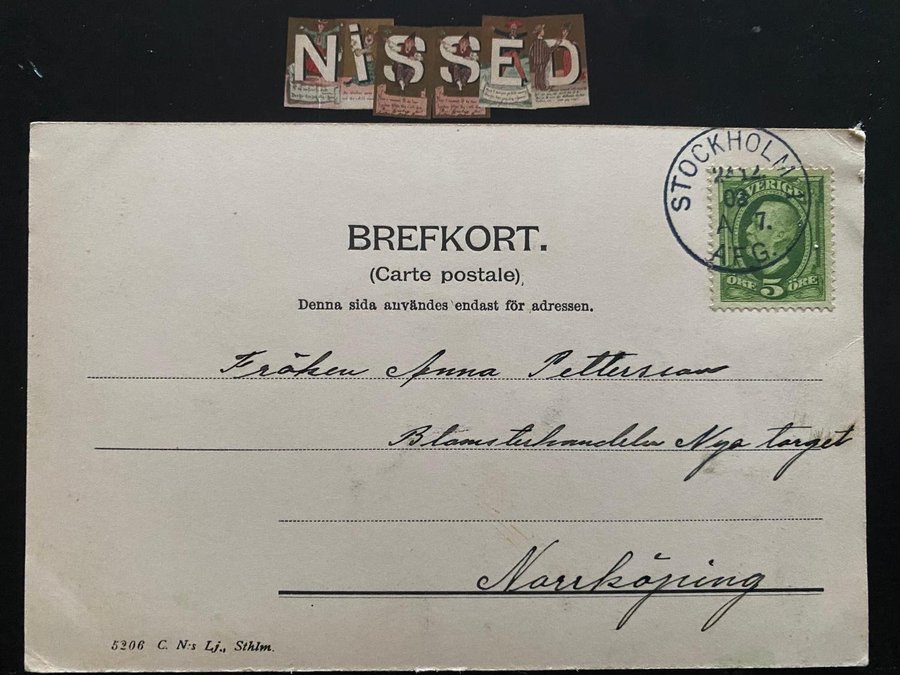 NiSSED
STOCKHOLM
24 12
03
A 7.
AFG.
SVERIGE
ÖRE 5 ÖRE
BREFKORT.
(Carte postale)
Denna sida användes endast för adressen.
Fröken Anna Pettersson
Blomsterhandeln Nya torget
Norrköping
5206 C. N:s Lj., Sthlm.